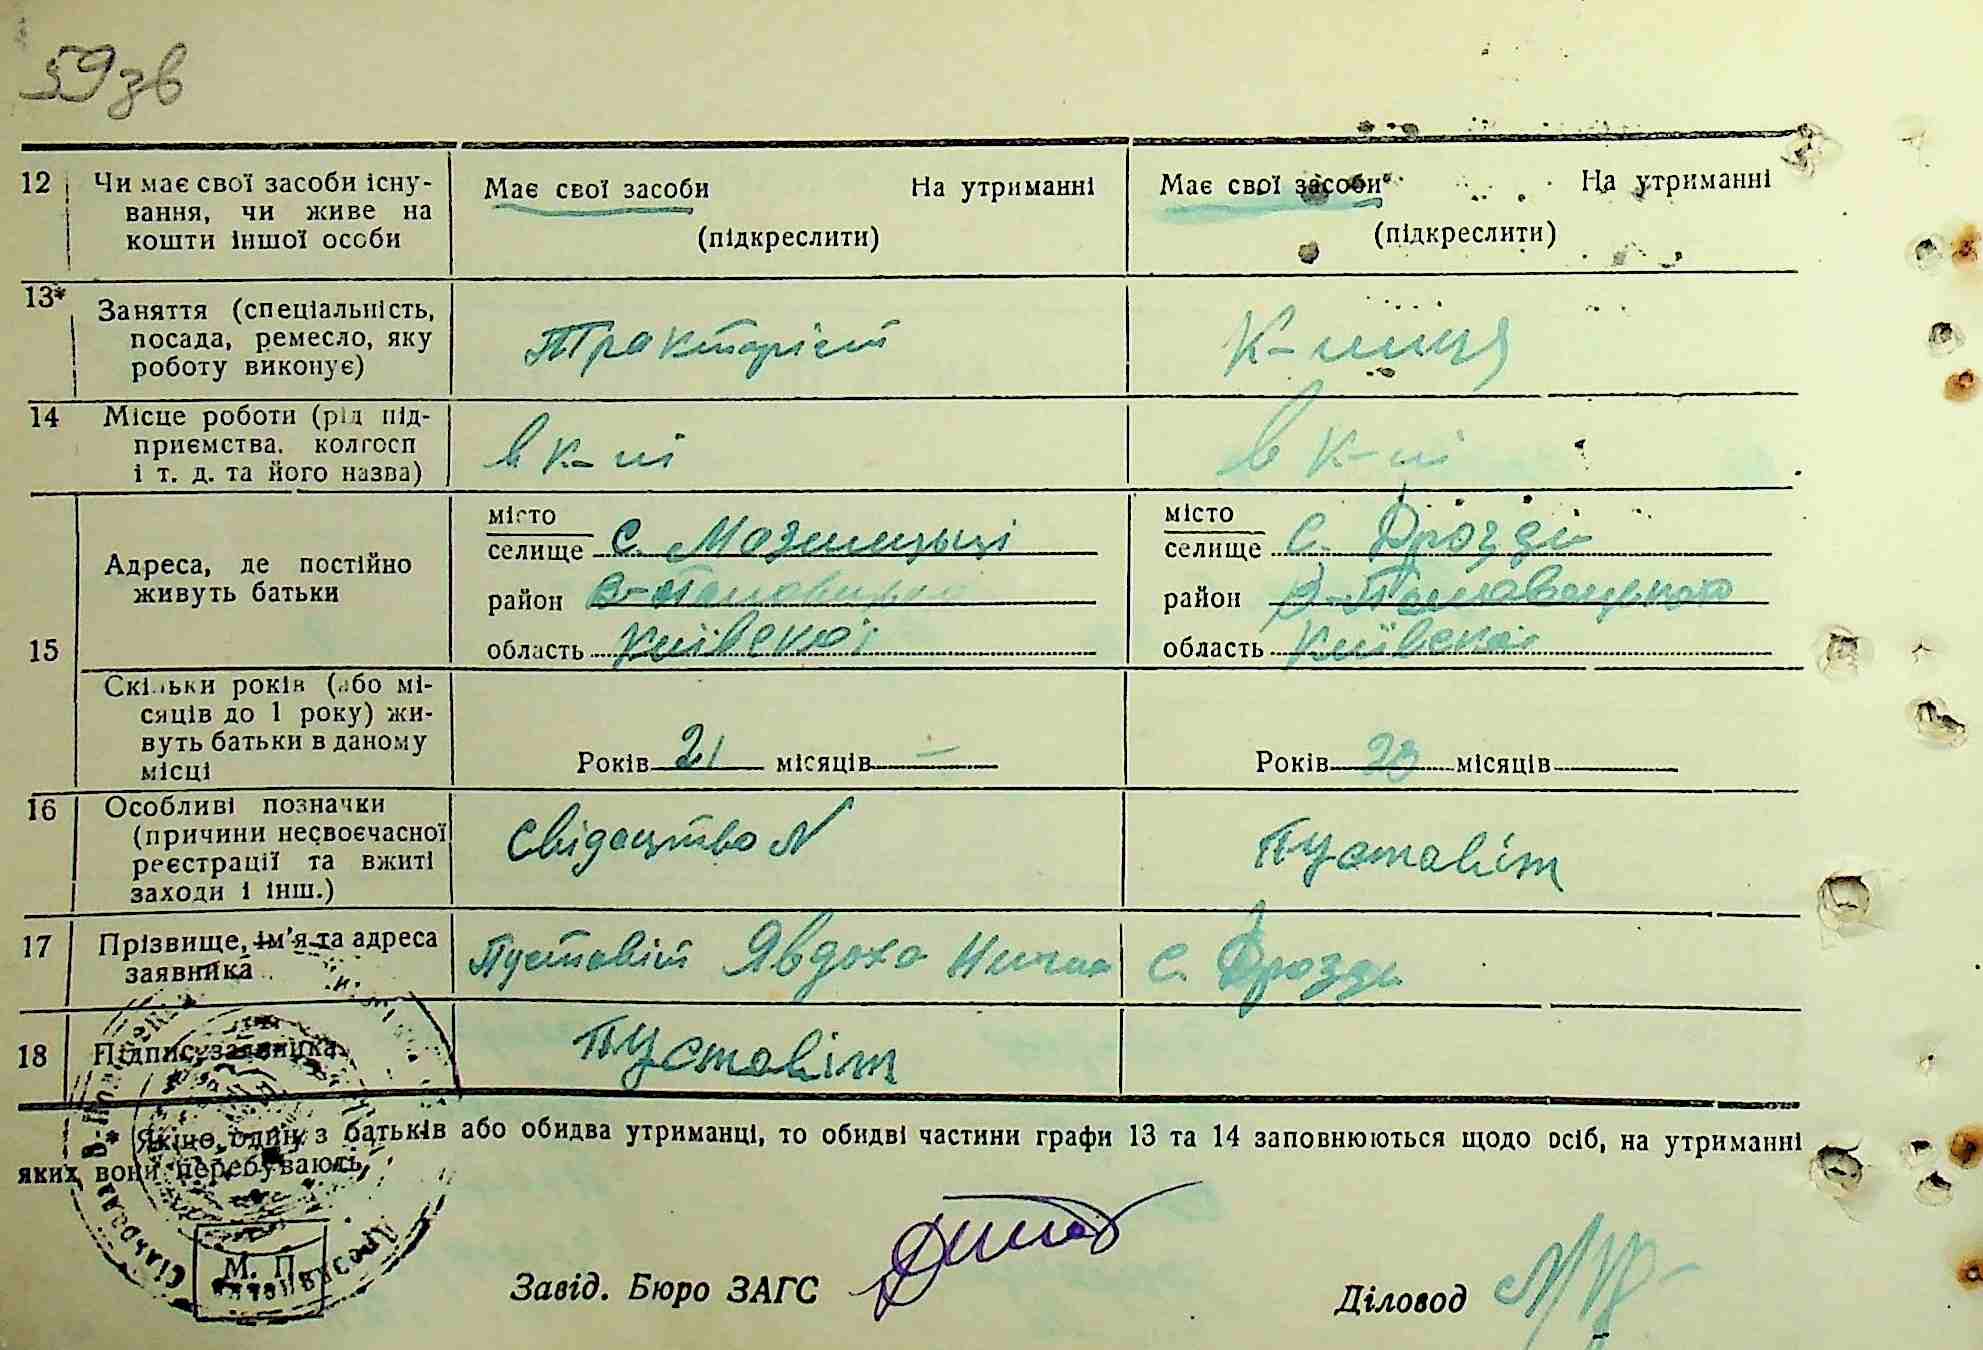 59зв
12 Чи має свої засоби існу-
вання, чи живе на
кошти іншої особи
Має свої засоби На утриманні
(підкреслити)
Має свої засоби На утриманні
(підкреслити)
13* Заняття (спеціальність,
посада, ремесло, яку
роботу виконує)
Тракторіст
К-ниця
14 Місце роботи (рід під-
приємства, колгосп
і т. д. та його назва)
в к-пі
в к-пі
15
Адреса, де постійно
живуть батьки
місто
селище с.
район
область Київської
місто
селище с. Дрозди
район В-Половецького
область Київської
Скільки років (або мі-
сяців до 1 року) жи-
вуть батьки в даному
місці
Років 21 місяців —
Років 23 місяців
16 Особливі позначки
(причини несвоєчасної
реєстрації та вжиті
заходи і інш.)
Свідоцтво N
Пустовіт
17 Прізвище, ім'я та адреса
заявника
Пустовіт Явдоха с. Дрозди
18 Підпис заявника
Пустовіт
* Якщо один з батьків або обидва утриманці, то обидві частини графи 13 та 14 заповнюються щодо осіб, на утриманні
яких вони перебувають.
М. П.
Завід. Бюро ЗАГС
Діловод